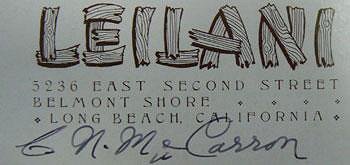 LEILANI
5236 EAST SECOND STREET
BELMONT SHORE
LONG BEACH, CALIFORNIA
C N. McCarron